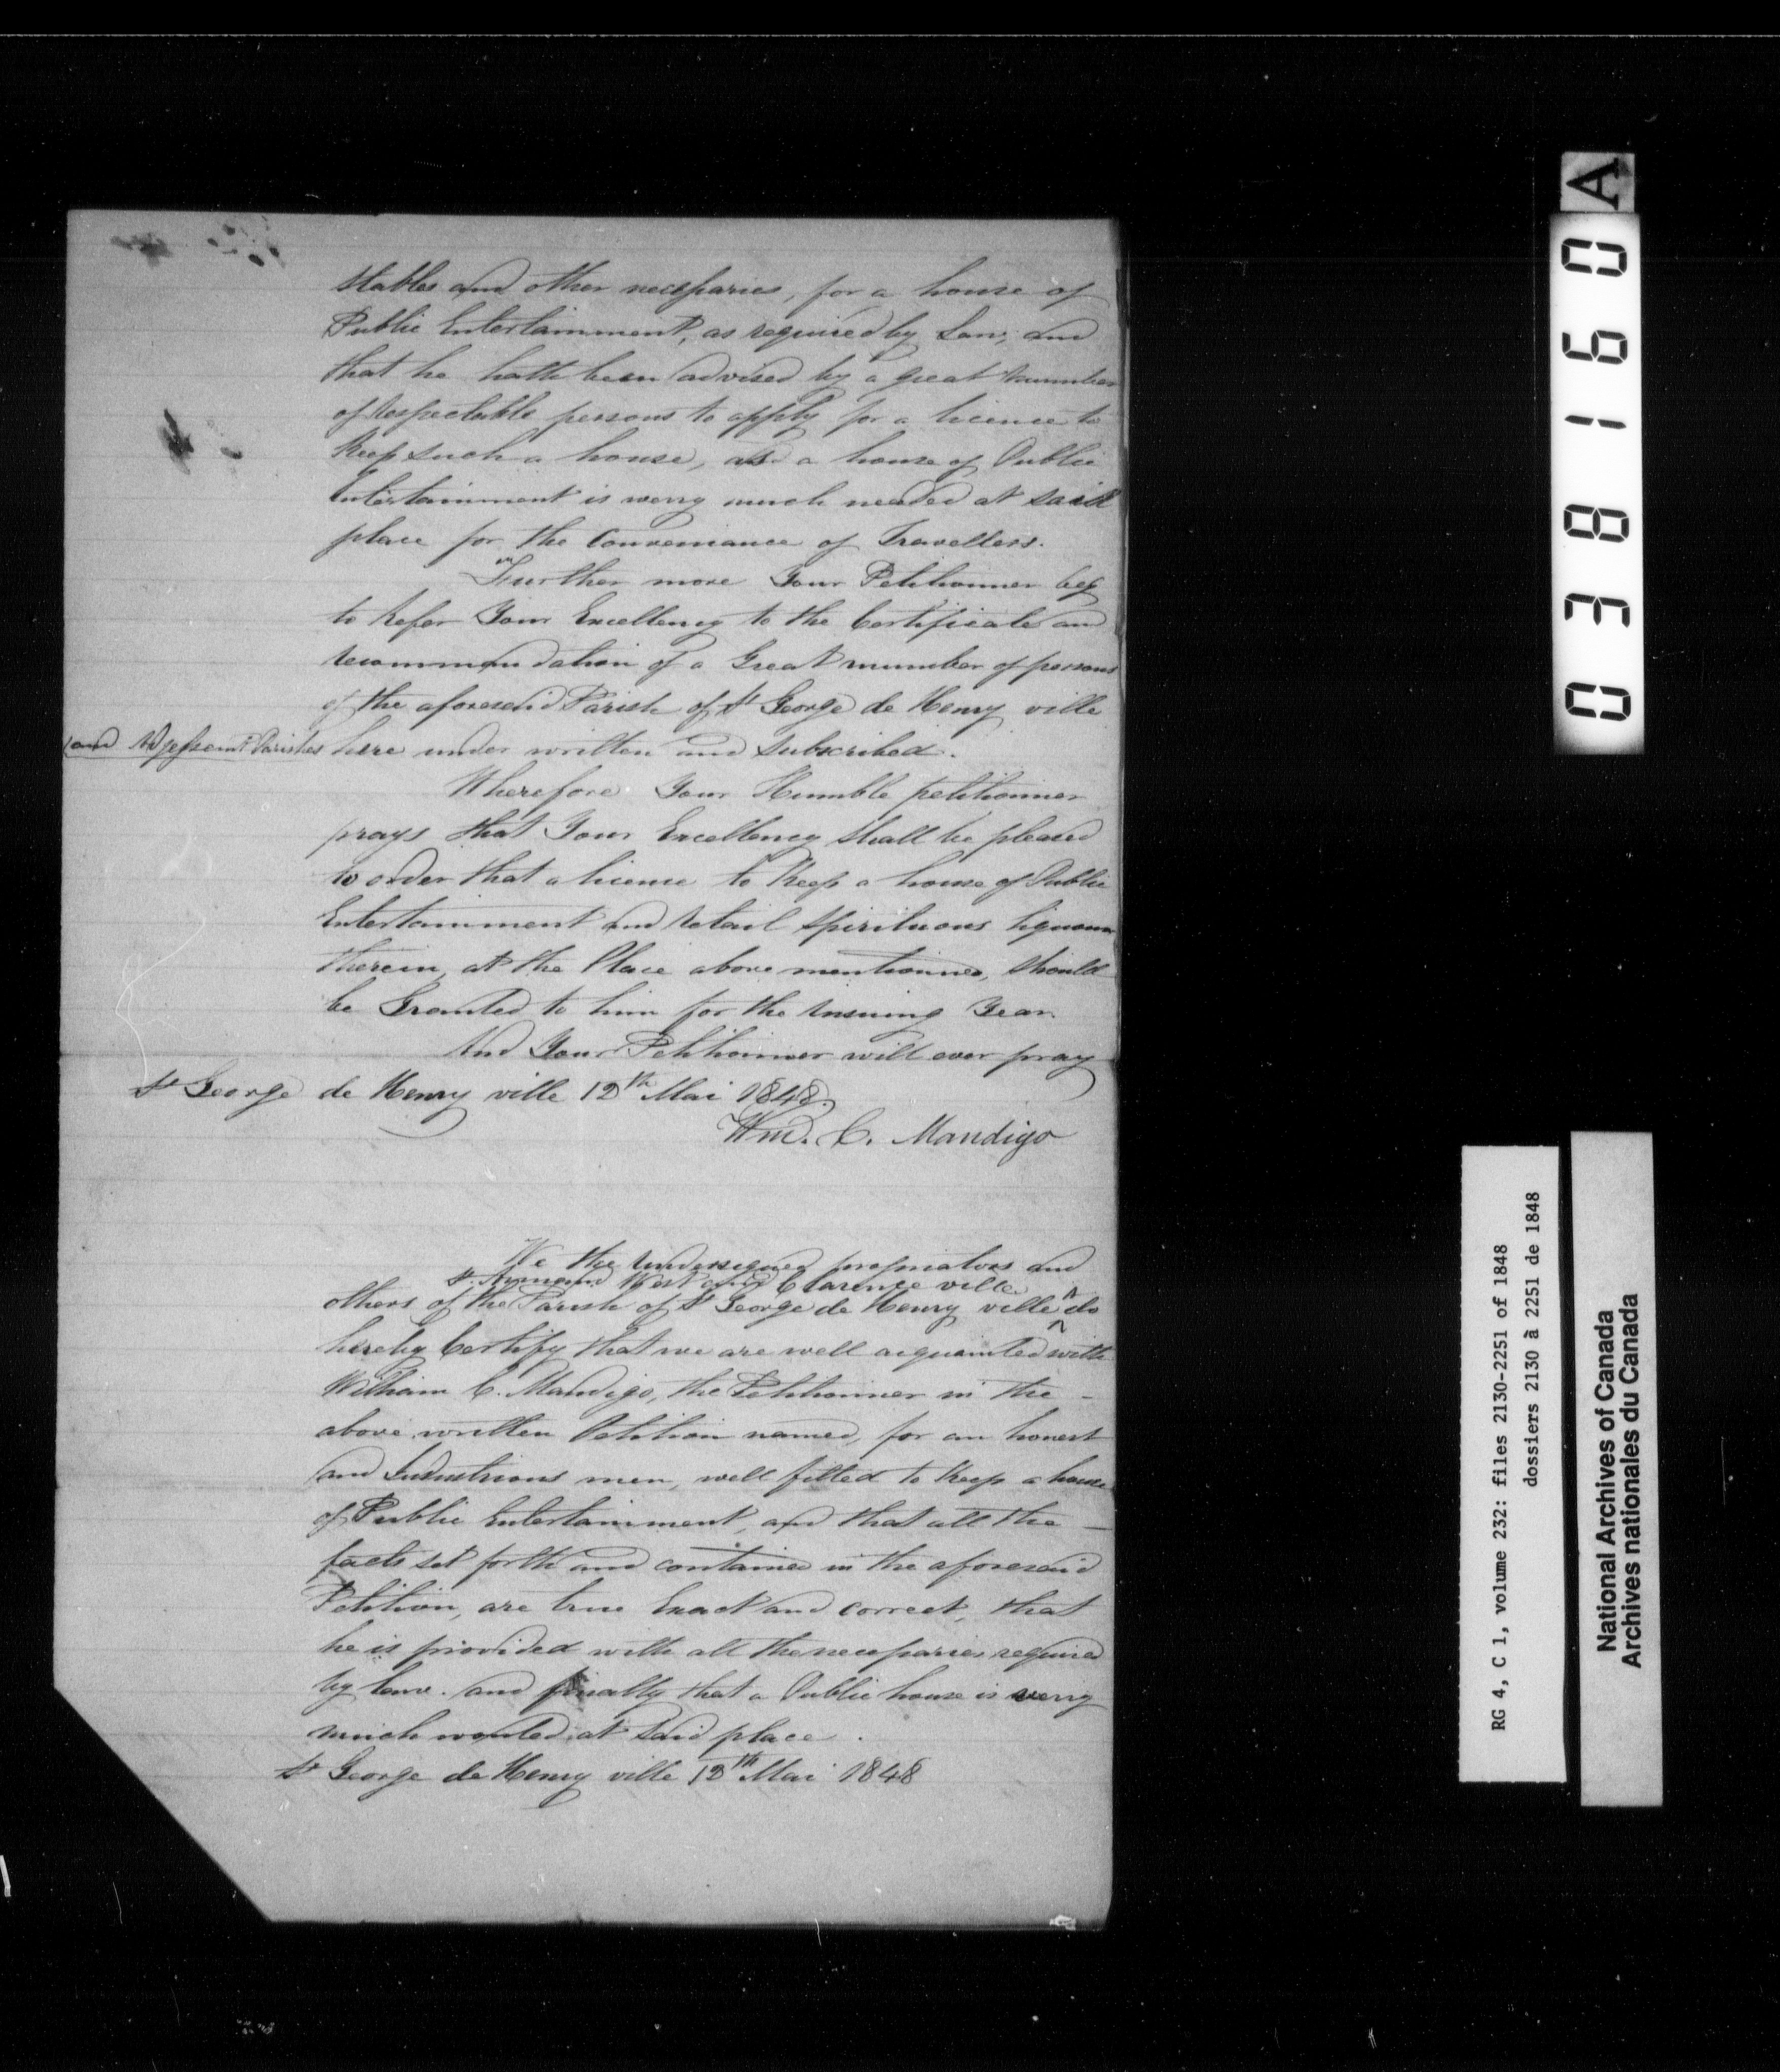 stables and other necessaries, for a house of
Public Entertainment, as required by Law, and
that he hath been advised by a great number
of respectable persons to apply for a licence to
keep such a house, as a house of Public
Entertainment is werry much needed at said
place for the Conveniance of Travellers.
Further more Your Petitionner beg
to Refer Your Excellency to the Certificate and
recommandation of a Great number of persons
of the aforesaid Parish of St George de Henry ville
(and Adjessent Parishes here under written and subscribed.
Wherefore Your Humble petitionner
prays that Your Excellency shall be pleased
to order that a licence to Keep a house of Public
Entertainment and retail spirituous liquours
therein, at the Place above mentionned, should
be Granted to him for the ensuing Year.
And Your Petitionner will ever pray
St George de Henry ville 12th Mai 1848.
Wm. C. Mandigo
We the undersigned propriators and
St Armand West and Clarence ville
others of the Parish of St George de Henry ville do
hereby Certify that we are well acquainted with
William C. Mandigo, the Petitionner in the -
above written Petition named, for an honest
and Industrious men, well fitted to keep a house
of Public Entertainment, and that all the -
facts set forth and contained in the aforesaid
Petition, are true Exact and correct, that
he is provided with all the necessaries required
by law. and finally that a Public house is werry
much wanted at said place.
St George de Henry ville 12th Mai 1848
A
038160
RG 4, C 1, volume 232: files 2130-2251 of 1848
dossiers 2130 à 2251 de 1848
National Archives of Canada
Archives nationales du Canada